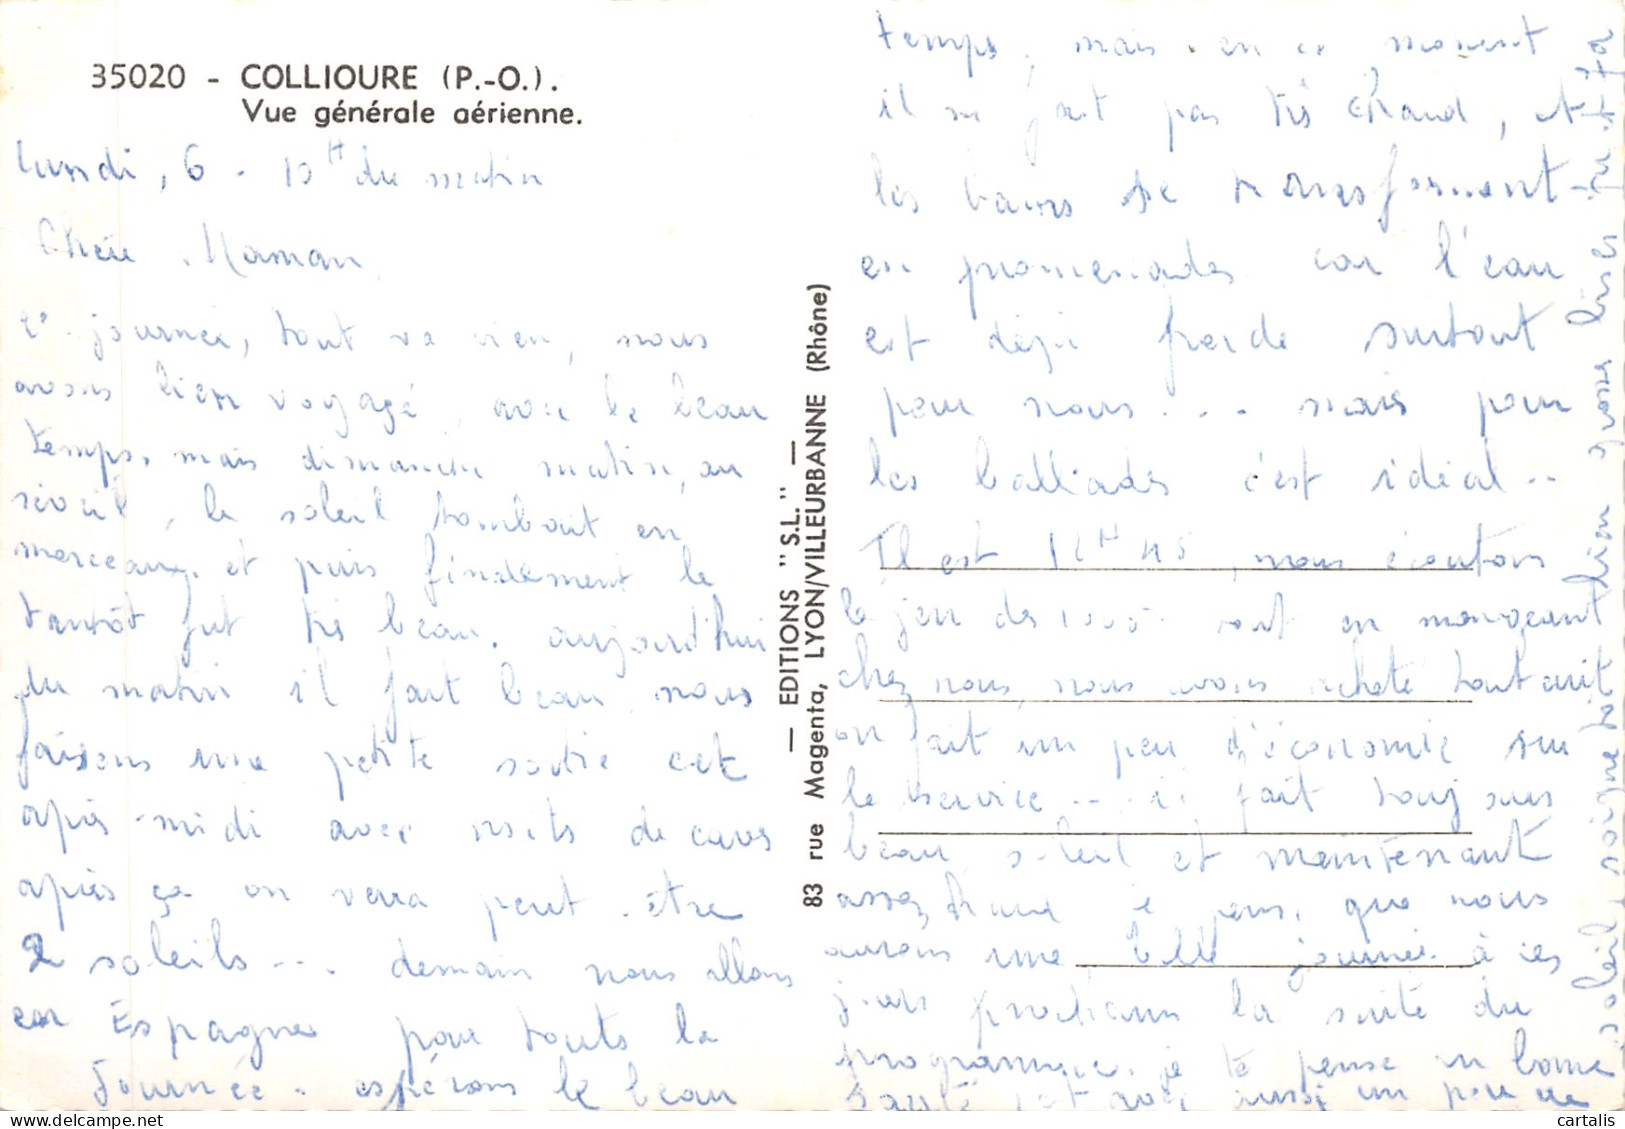 35020 - COLLIOURE (P.-O.).
Vue générale aérienne.
lundi, 6 - 10H du matin
Chère Maman,
2e journée, tout va bien, nous
avons bien voyagé, avec le beau
temps, mais dimanche matin, au
réveil, le soleil tombait en
morceaux, et puis finalement le
tantôt fut très beau. aujourd'hui
du matin il fait beau, nous
faisons une petite sortie cet
après-midi avec visits de caves
après ça on verra peut être
2 soleils ... demain nous allons
en Espagne pour touts la
Journée. espérons le beau
— EDITIONS "S.L." —
83 rue Magenta, LYON/VILLEURBANNE (Rhône)
temps, mais en ce moment
il ne fait pas très chaud, et
les bains se transforment
en promenades car l'eau
est déjà froide surtout
pour nous ... mais pour
les balliades c'est idéal ..
Il est 12H45, nous écoutons
le jeu des 1000 tout en mangeant
chez nous, nous avons acheté tout cuit
on fait un peu d'économie sur
le service ... il fait toujours
beau, soleil et maintenant
assez chaud je pense que nous
aurons une belle journée. à ces
jours prochains la suite du
programme. je te pense en bonne
santé et avec aussi un peu de
soleil, soigne toi bien grosse bises